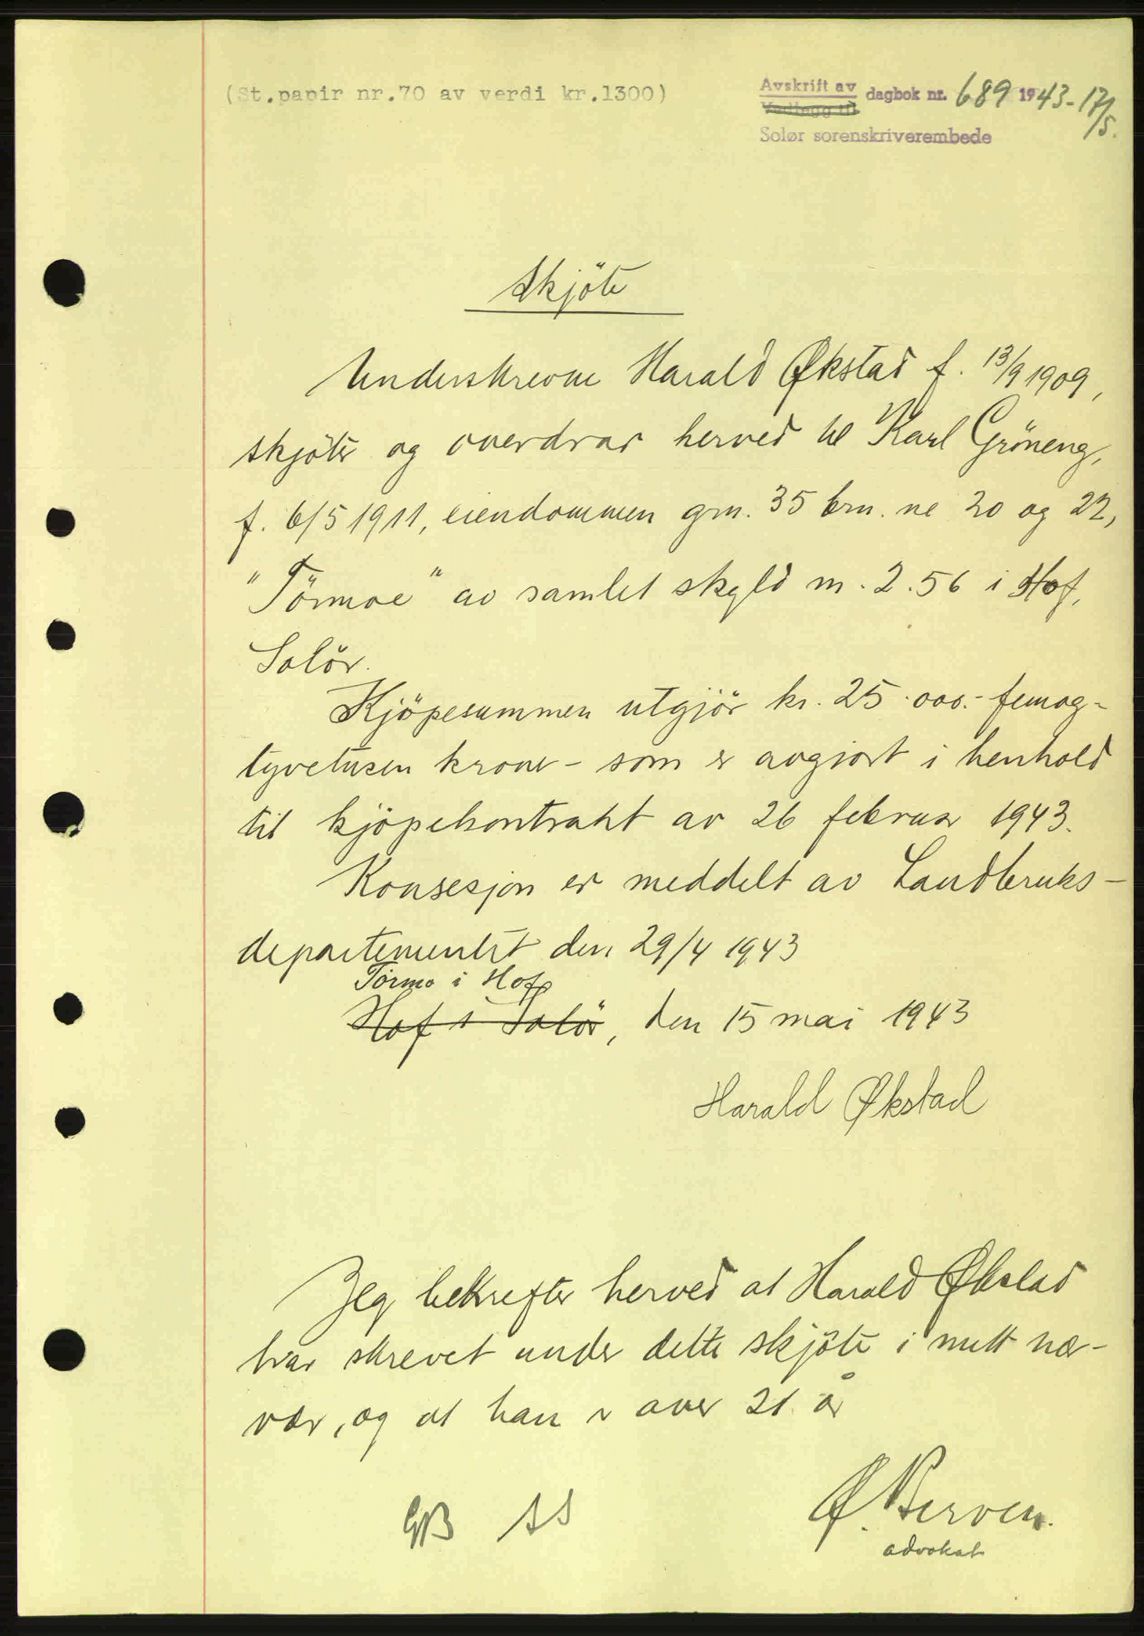 (St.papir nr.70 av verdi kr.1300)
Avskrift av
Vedlegg til
dagbok nr. 689 1943 - 17/5.
Solør sorenskriverembede
Skjöte
Underskrevne Harald Økstad f. 13/9 1909,
skjöter og overdrar herved til Karl Gröneng,
f. 6/5 1911, eiendommen grn. 35 brn. ne 20 og 22,
"Törmoe" av samlet skyld m. 2.56 i Hof,
Solör.
Kjöpesummen utgjör kr. 25.000.- femog-
tyvetusen kroner - som er avgjort i henhold
til kjöpekontrakt av 26 februar 1943.
Konsesjon er meddelt av Landbruks-
departementet den 29/4 1943
Törmo i Hof
Hof i Solör, den 15 mai 1943
Harald Økstad
Jeg bekrefter herved at Harald Økstad
har skrevet under dette skjöte i mitt nær-
vær, og at han er over 21 år
Ø. Berven.
advokat
GB SS